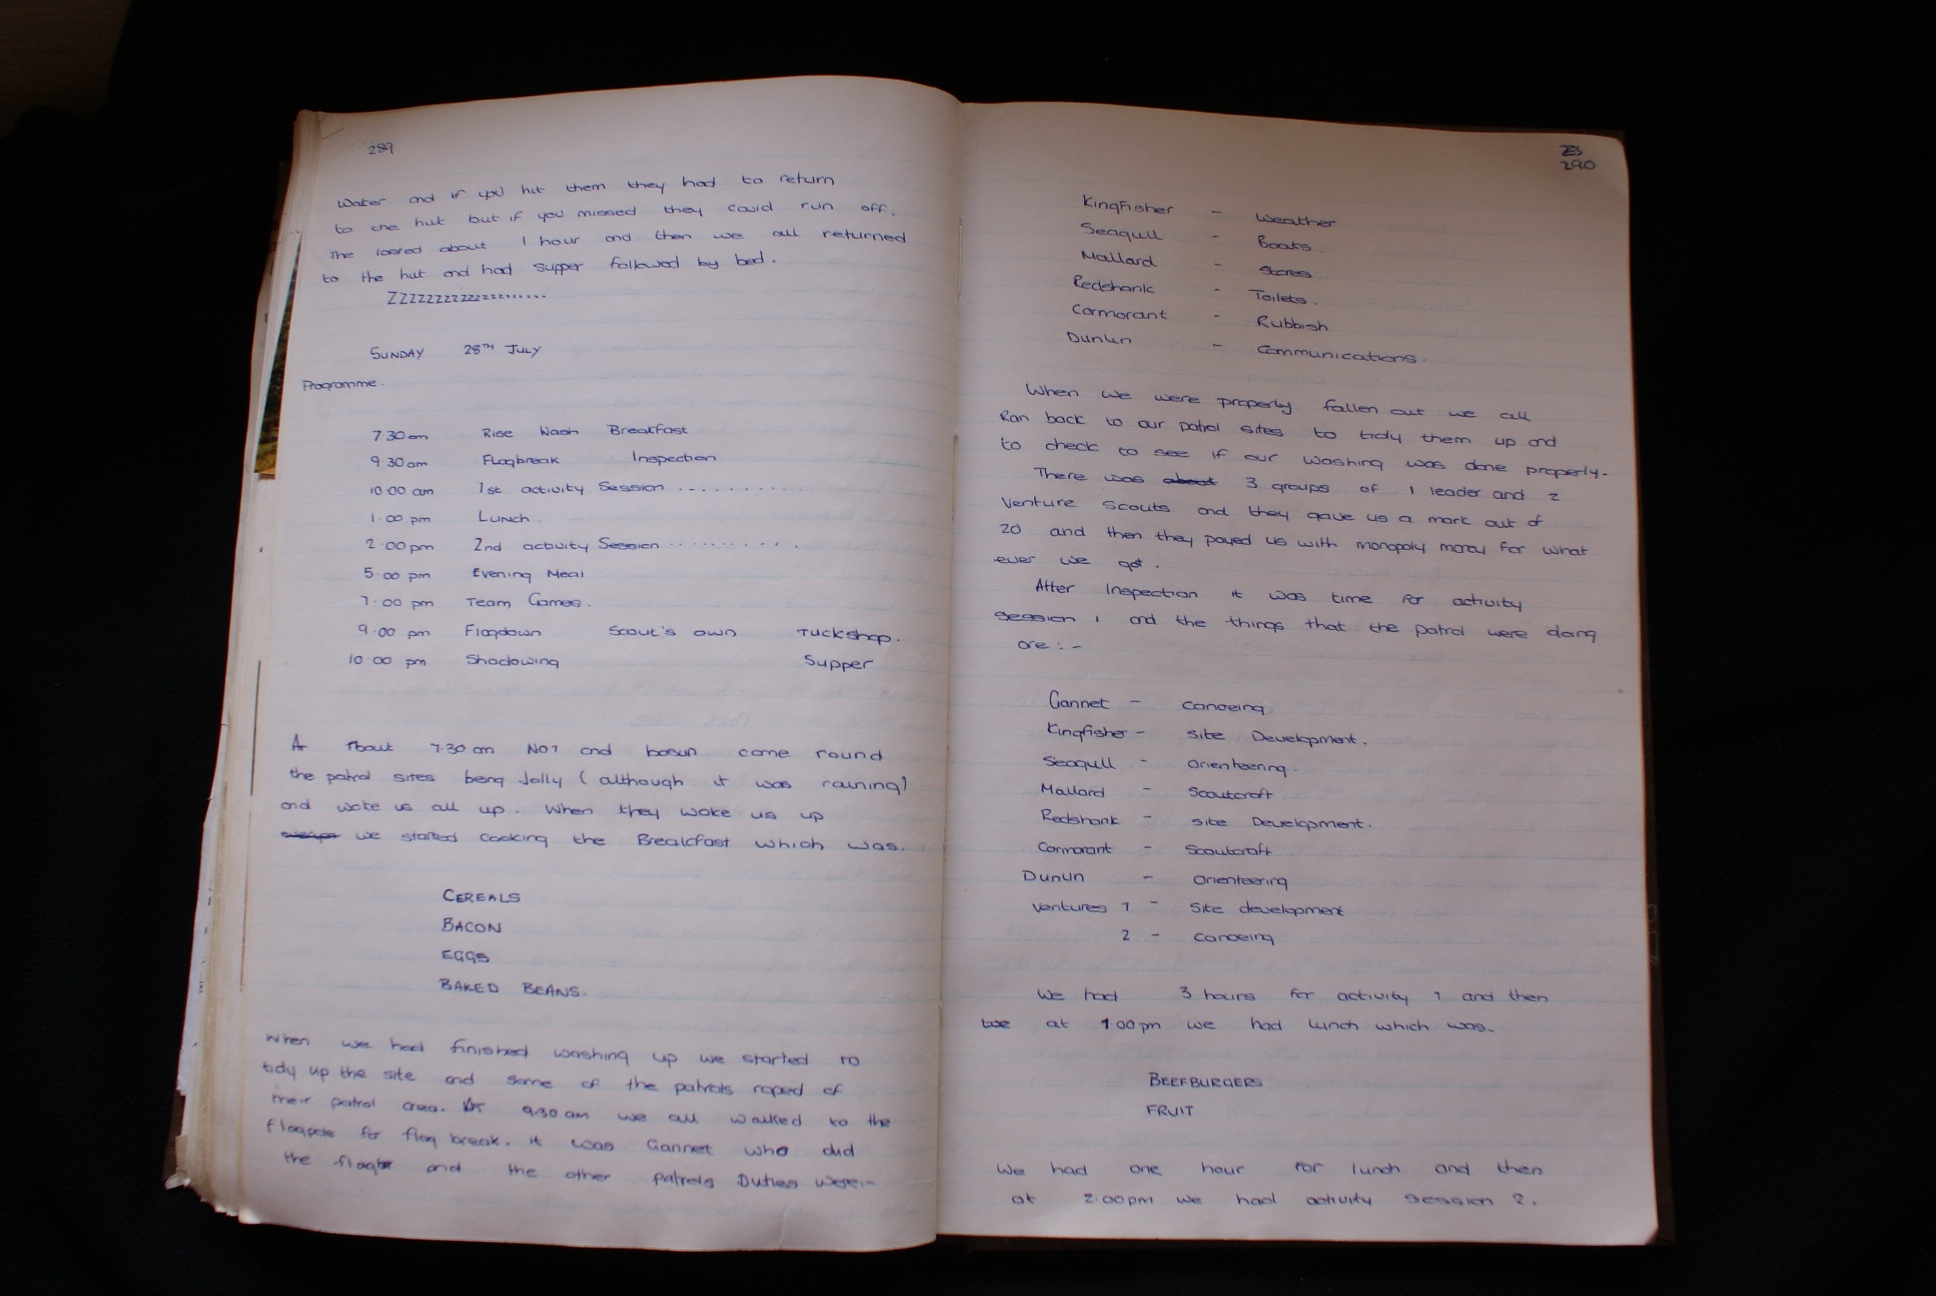 289
Water and if you hit them they had to return
to the hut but if you missed they could run off.
The loared about 1 hour and then we all returned
to the hut and had supper followed by bed.
Zzzzzzzzzzzzzzz......
SUNDAY 28TH JULY
Programme.
7 30 am Rise Wash Breakfast
9.30am Flagbreak Inspection
10.00 am 1st activity Session ..........
1.00 pm LUNCH.
2.00pm 2nd activity Session ..........
5.00 pm Evening Meal
7.00 pm Team Games.
9.00 pm Flagdown Scout's own Tuckshop.
10 00 pm Shadowing Supper
A About 7.30 am No1 and bosun come round
the patrol sites being Jolly (although it was raining)
and woke us all up. When they woke us up
we started cooking the Breakfast which was.
CEREALS
BACON
EGGS
BAKED BEANS.
When we had finished washing up we started to
tidy up the site and some of the patrols roped of
their patrol area. At 9.30 am we all walked to the
flagpole for flag break. it was Gannet who did
the flag and the other patrols Duties were:-
290
Kingfisher - Weather
Seagull - Boats.
Mallard - Stores
Redshank - Toilets.
Cormorant - Rubbish
Dunlin - Communications.
When we were properly fallen out we all
Ran back to our patrol sites to tidy them up and
to check to see if our washing was done properly.
There was about 3 groups of 1 leader and 2
Venture Scouts and they gave us a mark out of
20 and then they payed us with monopoly money for what
ever we got.
After Inspection it was time for activity
session 1 and the things that the patrol were doing
are:-
Gannet - canoeing
Kingfisher - site Development.
Seagull - orienteering.
Mallard - Scoutcraft
Redshank - site Development.
Cormorant - Scoutcraft
Dunlin - Orienteering
Ventures 1 - Site development
2 - canoeing
We had 3 hours for activity 1 and then
at 1.00pm we had lunch which was.
BEEFBURGERS
FRUIT
We had one hour for lunch and then
at 2.00pm we had activity session 2.